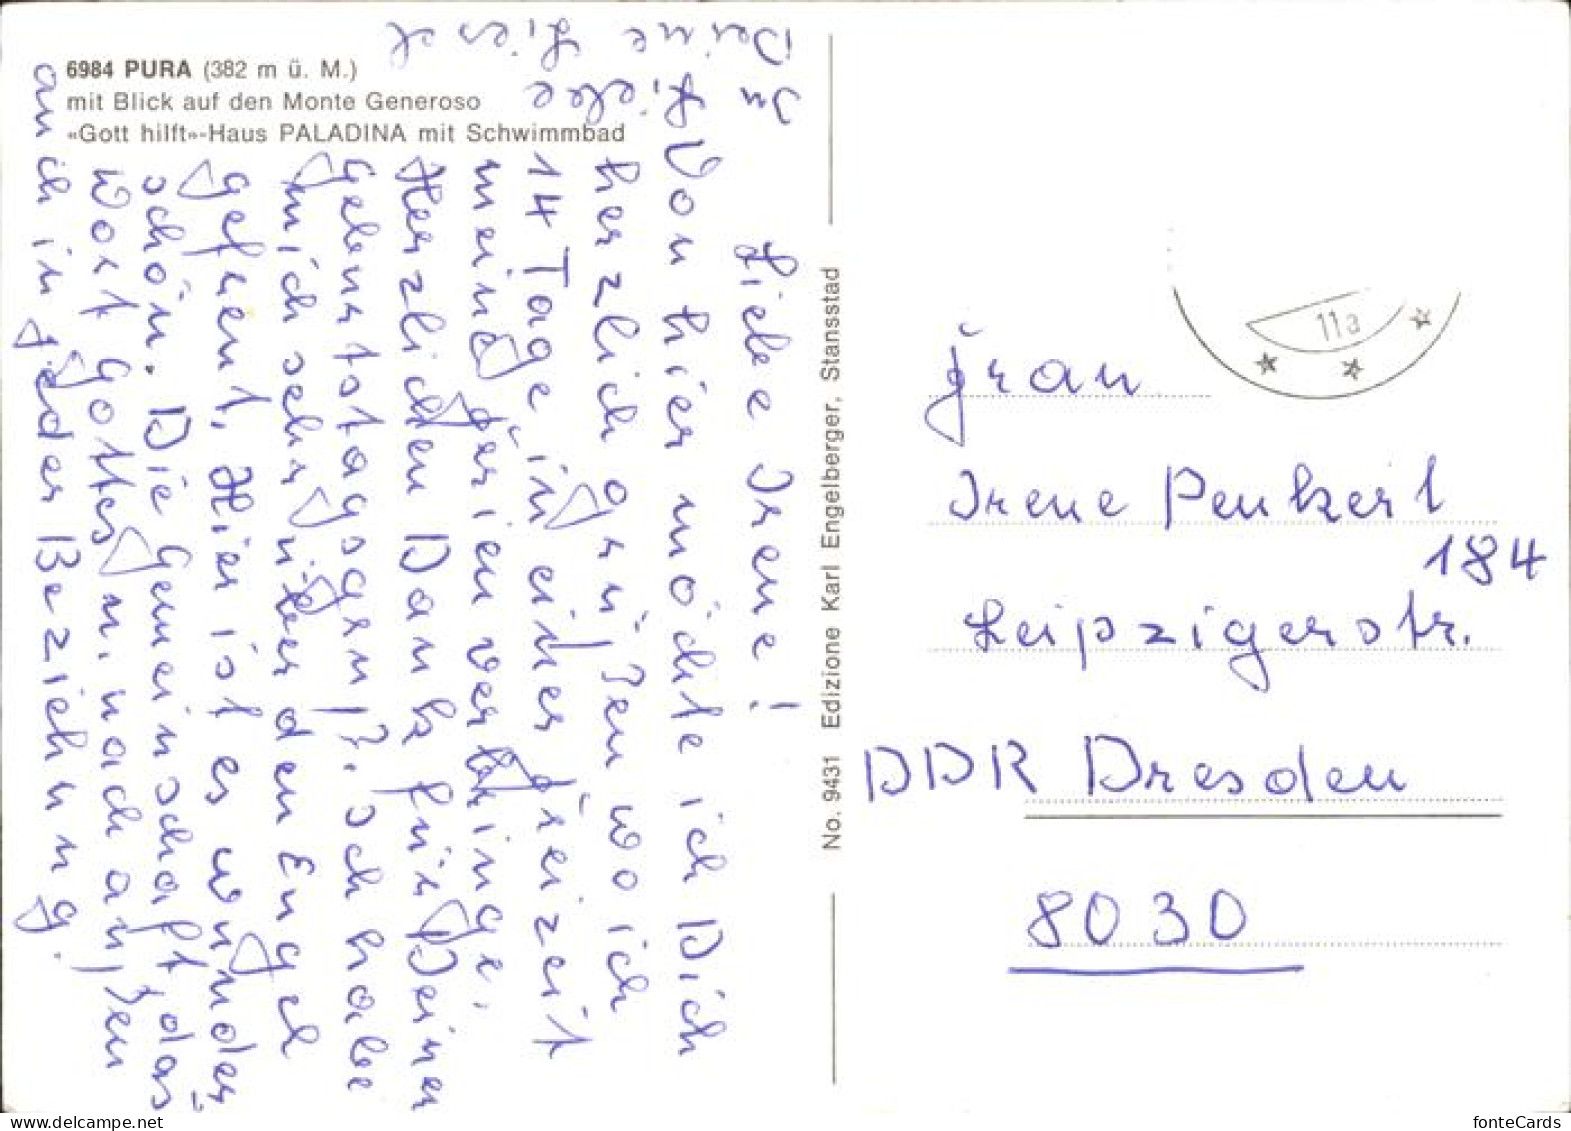 6984 PURA (382 m ü. M.)
mit Blick auf den Monte Generoso
«Gott hilft»-Haus PALADINA mit Schwimmbad
Liebe Irene!
Von hier möchte ich Dich
herzlich grüßen wo ich
14 Tage in einer Freizeit
meine Ferien verbringe.
Herzlichen Dank für Deinen
Geburtstagsgruß. Ich habe
mich sehr über den Engel
gefreut, Hier ist es wunder
schön. Die Gemeinschaft, das
Wort Gottes u. nach außen
auch in jeder Beziehung.
In
Liebe
Deine Liesel
No. 9431 Edizione Karl Engelberger, Stansstad
11a
Frau
Irene Penkert
184
Leipzigerstr.
DDR Dresden
8030
www.delcampe.net
fonteCards